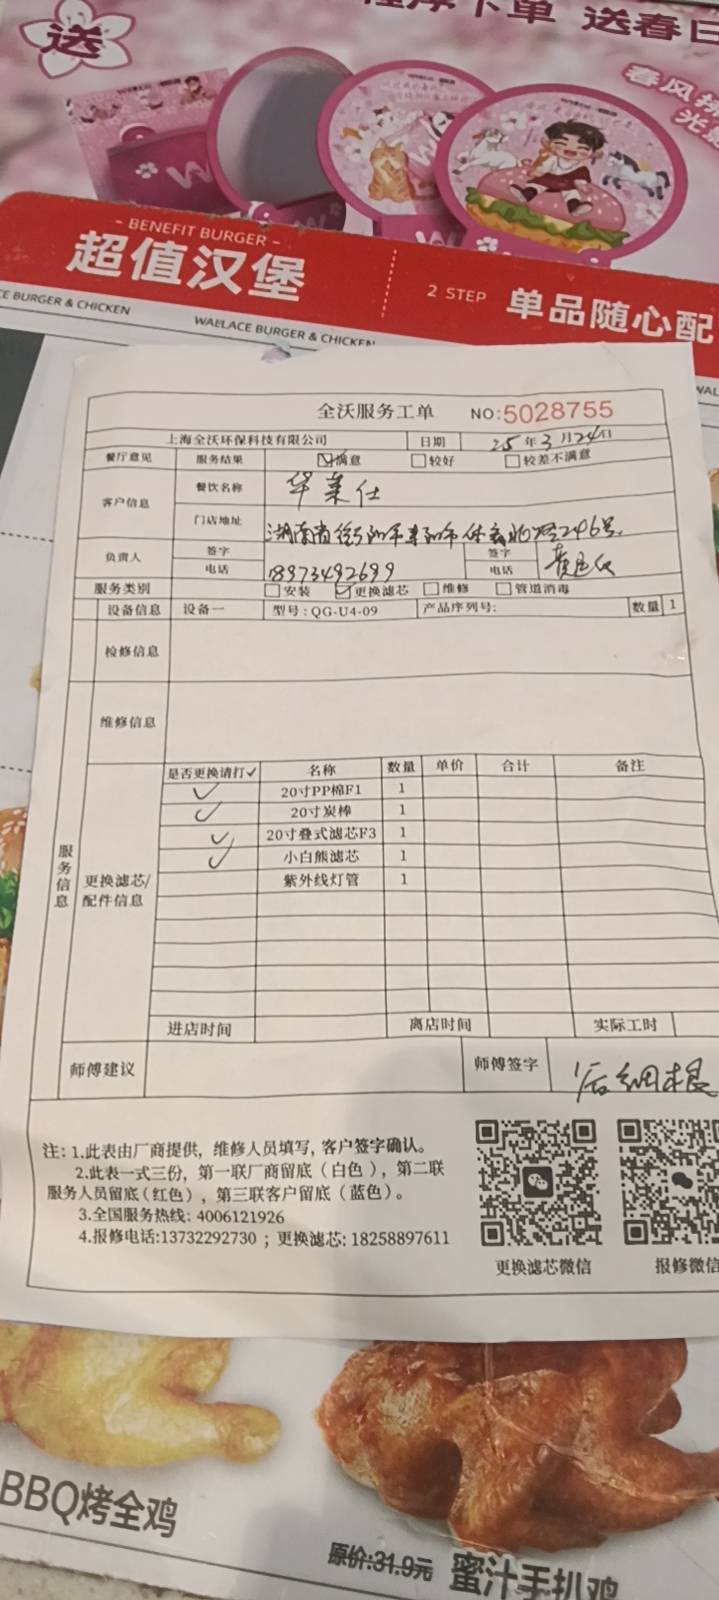 送
下单 送春日
春风
BENEFIT BURGER
超值汉堡
2 STEP 单品随心配
CE BURGER & CHICKEN
WALLACE BURGER & CHICKEN
全沃服务工单 NO:5028755
上海全沃环保科技有限公司 日期 25年3月24日
餐厅意见 服务结果 满意 较好 较差不满意
客户信息 餐饮名称 华莱仕
门店地址 湖南省衡阳市耒阳市 246号
负责人 签字 签字
电话 18973492699 电话
服务类别 安装 更换滤芯 维修 管道消毒
设备信息 设备一 型号:QG-U4-09 产品序列号: 数量 1
检修信息
维修信息
服务信息
更换滤芯/配件信息
是否更换请打✓ 名称 数量 单价 合计 备注
✓ 20寸PP棉F1 1
✓ 20寸炭棒 1
✓ 20寸叠式滤芯F3 1
✓ 小白熊滤芯 1
紫外线灯管 1
进店时间 离店时间 实际工时
师傅建议 师傅签字
注: 1.此表由厂商提供, 维修人员填写, 客户签字确认。
2.此表一式三份, 第一联厂商留底(白色), 第二联
服务人员留底(红色), 第三联客户留底(蓝色)。
3.全国服务热线: 4006121926
4.报修电话:13732292730 ; 更换滤芯: 18258897611
更换滤芯微信 报修微信
BBQ烤全鸡
原价:31.9元 蜜汁手扒鸡